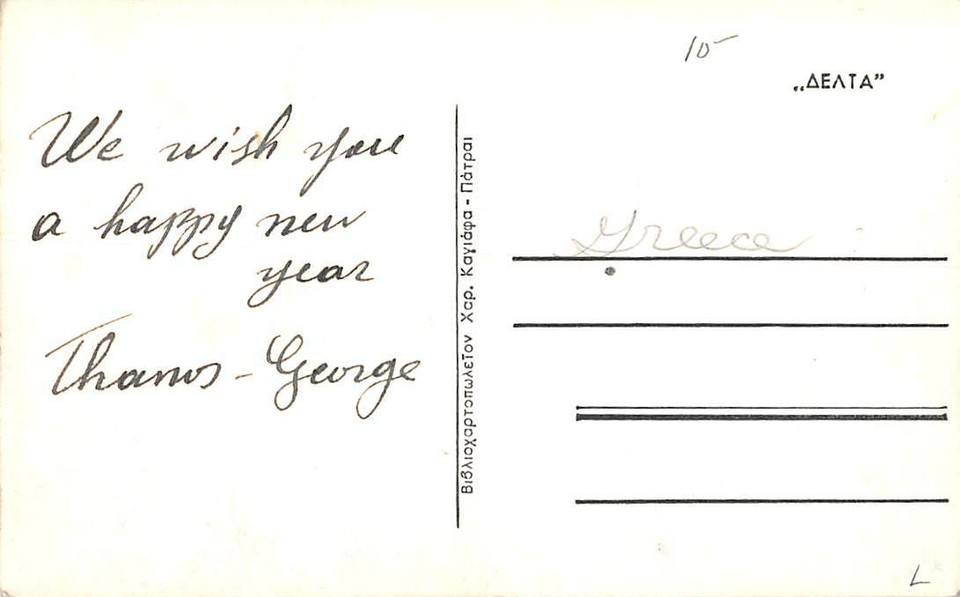 We wish you
a happy new
year
Thanos - George
Βιβλιοχαρτοπωλεῖον Χαρ. Καγιάφα - Πάτραι
10-
„ΔΕΛΤΑ”
Greece
L